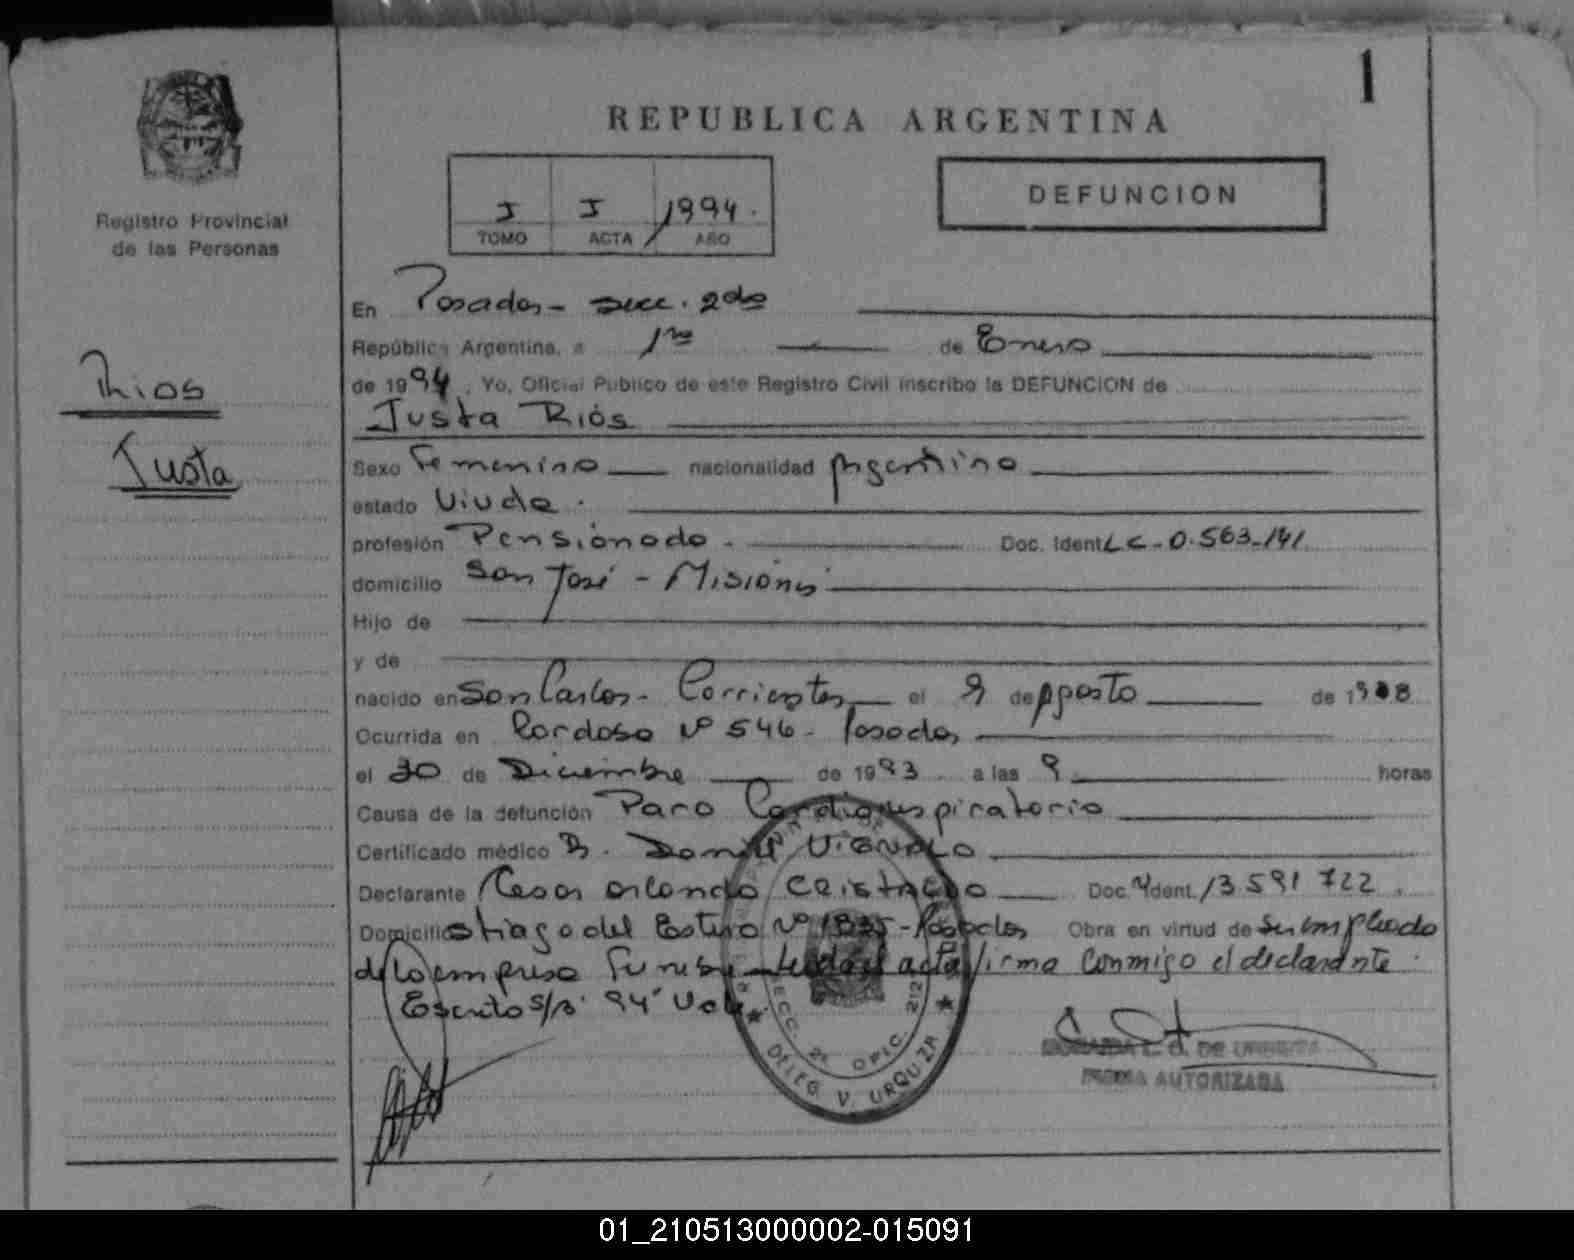 1
REPUBLICA ARGENTINA
Registro Provincial
de las Personas
I I 1994.
TOMO ACTA AÑO
DEFUNCION
Rios
Justa
En Posadas - secc. 2da
República Argentina, a 1ro de Enero
de 1994, Yo, Oficial Publico de este Registro Civil inscribo la DEFUNCION de
Justa Riós
Sexo Femenino nacionalidad Argentina
estado Viuda.
profesión Pensionada - Doc. Ident. LC - 0.563.141
domicilio San José - Misiones
Hijo de
y de
nacido en San Carlos - Corrientes el 9 de Agosto de 19 8
Ocurrida en Cordoso Nº 546 - Posadas
el 30 de Diciembre de 1993. a las 9 horas
Causa de la defunción Paro Cardiorespiratorio
Certificado médico Daniel
Declarante Cesar orlando Doc. Ident. 13.591 722.
Domicilio Stiago del Estero Nº 1835 - Posadas Obra en virtud de Ser empleado
de la empresa Funebre leída el acta firma conmigo el declarante.
Escrito s/b: 94 Vale.
SECC. 2ª OFIC. 212
DELEG V. URQUIZA
FIRMA AUTORIZADA
01_210513000002-015091